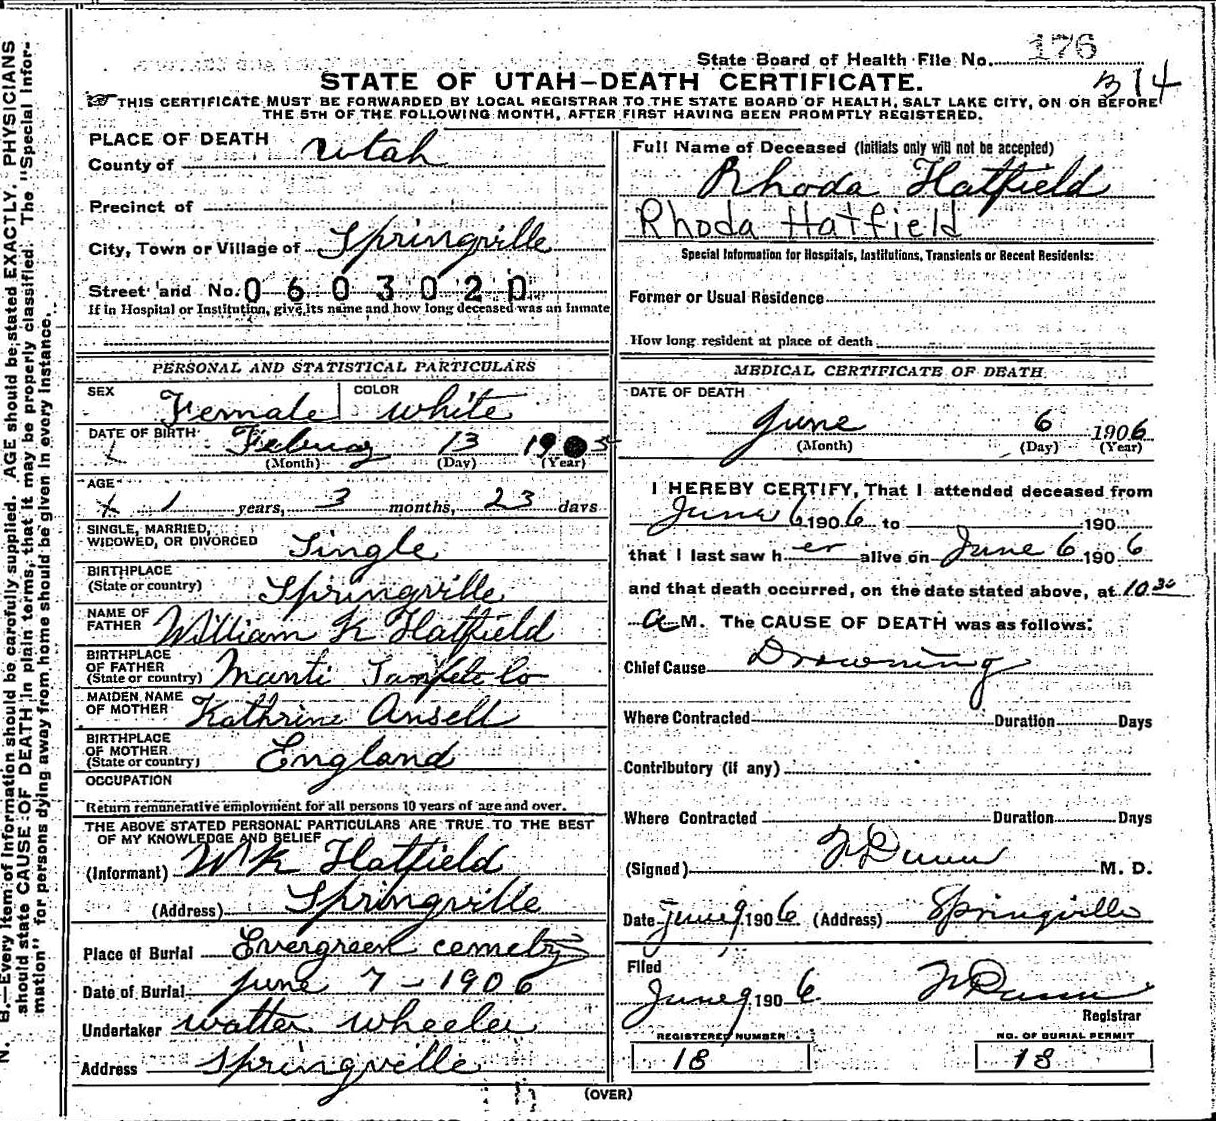 State Board of Health File No. 176
STATE OF UTAH—DEATH CERTIFICATE.
314
THIS CERTIFICATE MUST BE FORWARDED BY LOCAL REGISTRAR TO THE STATE BOARD OF HEALTH, SALT LAKE CITY, ON OR BEFORE
THE 5TH OF THE FOLLOWING MONTH, AFTER FIRST HAVING BEEN PROMPTLY REGISTERED.
PLACE OF DEATH
County of Utah
Precinct of
City, Town or Village of Springville
Street and No. 0603020
If in Hospital or Institution, give its name and how long deceased was an inmate
Full Name of Deceased (Initials only will not be accepted)
Rhoda Hatfield
Rhoda Hatfield
Special Information for Hospitals, Institutions, Transients or Recent Residents:
Former or Usual Residence
How long resident at place of death
PERSONAL AND STATISTICAL PARTICULARS
SEX Female COLOR white
DATE OF BIRTH Febuay 13 1905
(Month) (Day) (Year)
AGE
1 years, 3 months, 23 days
SINGLE, MARRIED,
WIDOWED, OR DIVORCED Single
BIRTHPLACE
(State or country) Springville
NAME OF
FATHER William K Hatfield
BIRTHPLACE
OF FATHER
(State or country) Manti Sanpete Co
MAIDEN NAME
OF MOTHER Kathrine Ansell
BIRTHPLACE
OF MOTHER
(State or country) England
OCCUPATION
Return remunerative employment for all persons 10 years of age and over.
THE ABOVE STATED PERSONAL PARTICULARS ARE TRUE TO THE BEST
OF MY KNOWLEDGE AND BELIEF
(Informant) W K Hatfield
(Address) Springville
Place of Burial Evergreen cemetry
Date of Burial june 7 - 1906
Undertaker walter wheeler
Address Springville
MEDICAL CERTIFICATE OF DEATH
DATE OF DEATH
june 6 1906
(Month) (Day) (Year)
I HEREBY CERTIFY, That I attended deceased from
June 6 1906 to 190
that I last saw her alive on June 6 1906
and that death occurred, on the date stated above, at 10 30
a M. The CAUSE OF DEATH was as follows:
Chief Cause Drowning
Where Contracted Duration Days
Contributory (if any)
Where Contracted Duration Days
(Signed) Dunn M. D.
Date june 9 1906 (Address) Springville
Filed
June 9 1906 Dunn
Registrar
REGISTERED NUMBER
18
NO. OF BURIAL PERMIT
18
(OVER)
N. B.—Every item of information should be carefully supplied. AGE should be stated EXACTLY. PHYSICIANS
should state CAUSE OF DEATH in plain terms, that it may be properly classified. The "Special Infor-
mation" for persons dying away from home should be given in every instance.